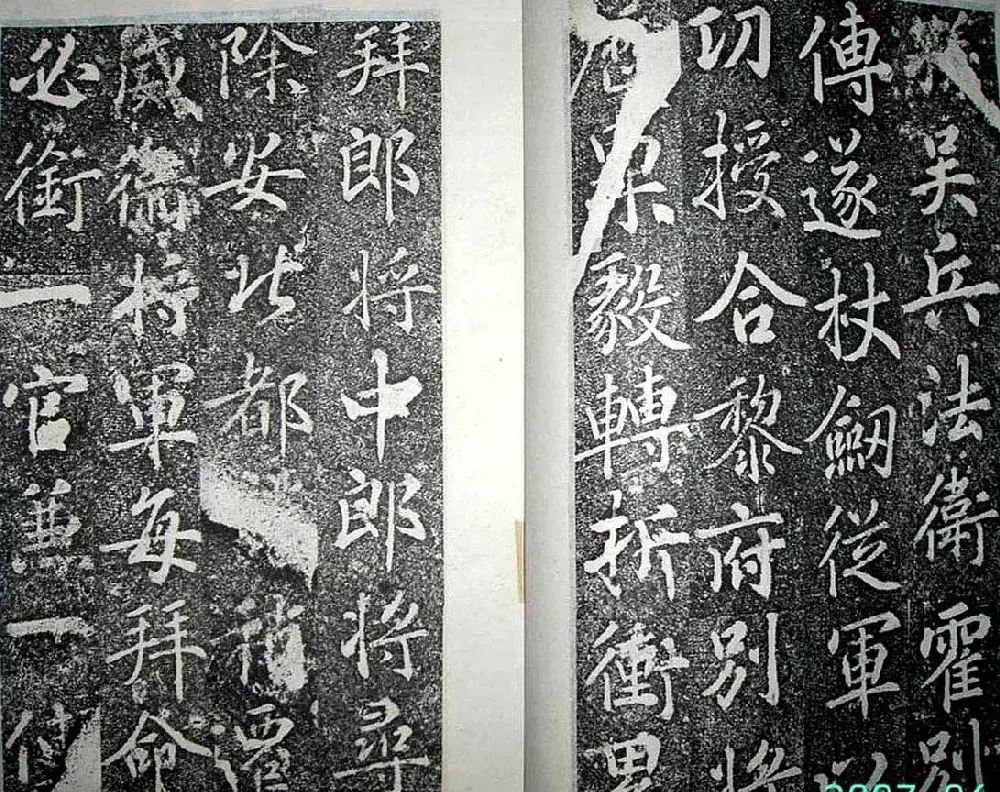 吳兵法衛霍別
傳遂杖劒從軍以
功授合黎府別將
果毅轉折衝累
拜郎將中郎將尋
除安北都稍遷
威衛將軍每拜命
必銜一官兼一使